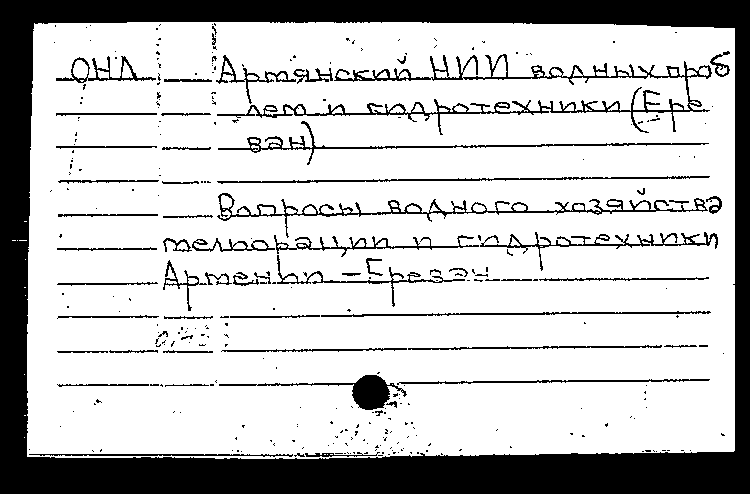 ОНЛ Армянский НИИ водных проб
лем и гидротехники (Ере
ван)
Вопросы водного хозяйства
мелиорации и гидротехники
Армении – Ереван